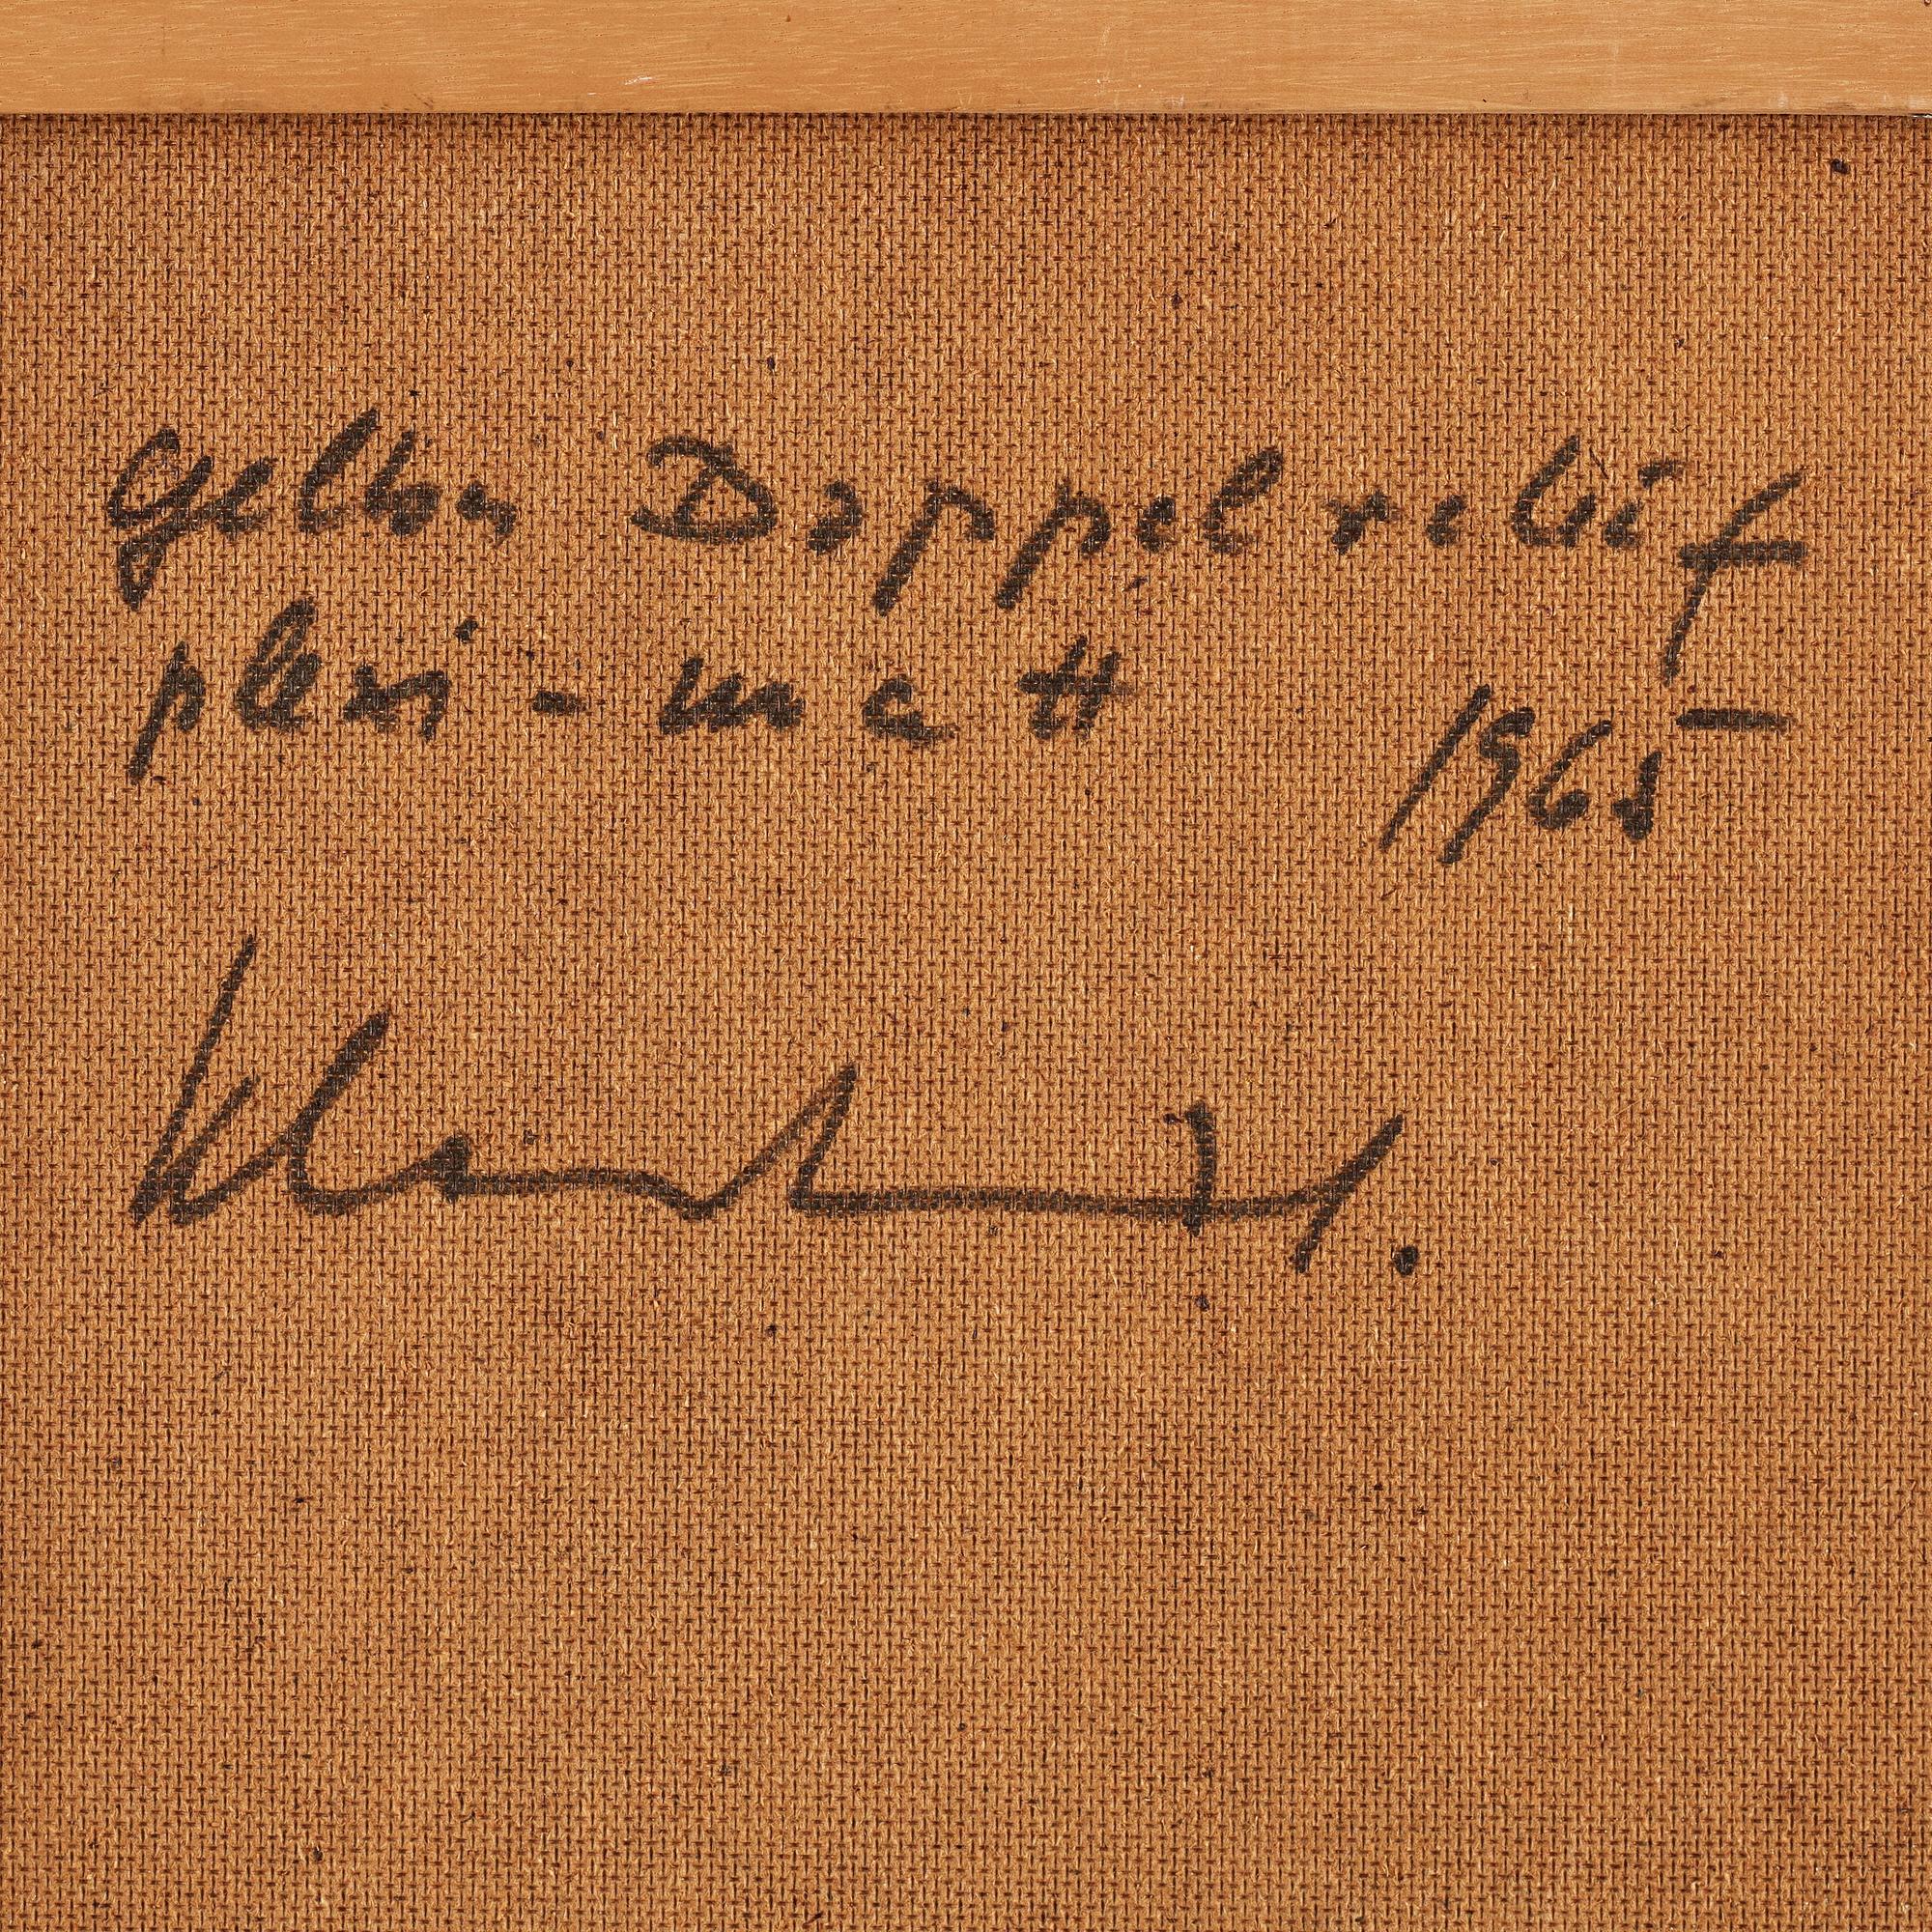 gelbes Doppelrelief
plexi - matt
1965